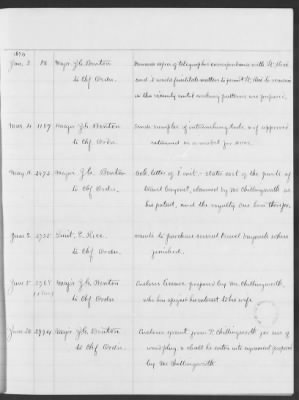 1874
Jan. 3 86 Major J.G. Benton
to Chf Ordn.
copies of telegraphic correspondence with Lt. Rice
and it would facilitate matters to permit Lt. Rice to remain
in this vicinity until working patterns are prepared.
Mar. 4 1187 Major J.G. Benton
to Chf Ordn.
Sends samples of intrenching tools & if approved
returned as a model for
May 2472 Major J.G. Benton
to Chf Ordn.
Ack. letter of 1 inst. - states cost of the parts of
trowel bayonet, claimed by Mr Chillingworth as
his patent, and the royalty due him therefor.
June 2 2735 Lieut. E. Rice
to Chf Ordn.
wants to purchase several trowel bayonets when
finished.
June 5 2767 Major J.G. Benton
to Chf Ordn.
Encloses license prepared by Mr Chillingworth
who has assigned his interest to his wife
June 20 2994 Major J.G. Benton
to Chf Ordn
Encloses grant from F. Chillingworth for use of
& shall he enter into agreement proposed
by Mr Chillingworth